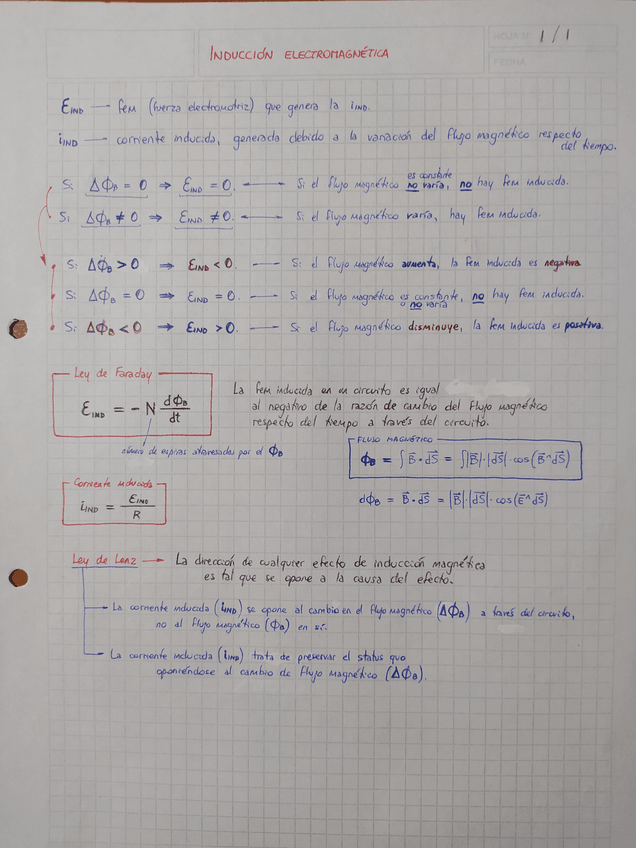 HOJA Nº 1/1
FECHA
INDUCCIÓN ELECTROMAGNÉTICA
εIND — fem (fuerza electromotriz) que genera la iIND.
iIND — corriente inducida, generada debido a la variación del flujo magnético respecto
del tiempo.
es constante
Si ΔΦB = 0 ⇒ εIND = 0. ← Si el flujo magnético no varía, no hay fem inducida.
Si ΔΦB ≠ 0 ⇒ εIND ≠ 0. ← Si el flujo magnético varía, hay fem inducida.
Si ΔΦB > 0 ⇒ εIND < 0. — Si el flujo magnético aumenta, la fem inducida es negativa
Si ΔΦB = 0 ⇒ εIND = 0. — Si el flujo magnético es constante, no hay fem inducida.
o no varía
Si ΔΦB < 0 ⇒ εIND > 0. — Si el flujo magnético disminuye, la fem inducida es positiva.
Ley de Faraday
εIND = - N dΦB/dt
La fem inducida en un circuito es igual
al negativo de la razón de cambio del flujo magnético
respecto del tiempo a través del circuito.
número de espiras atravesadas por el ΦB
FLUJO MAGNÉTICO
ΦB = ∫ B⃗ • dS⃗ = ∫|B⃗|·|dS⃗|·cos(B⃗^dS⃗)
dΦB = B⃗ • dS⃗ = |B⃗|·|dS⃗|·cos(B⃗^dS⃗)
Corriente inducida
iIND = εIND/R
Ley de Lenz → La dirección de cualquier efecto de inducción magnética
es tal que se opone a la causa del efecto.
La corriente inducida (iIND) se opone al cambio en el flujo magnético (ΔΦB) a través del circuito,
no al flujo magnético (ΦB) en sí.
La corriente inducida (iIND) trata de preservar el status quo
oponiéndose al cambio de flujo magnético (ΔΦB).